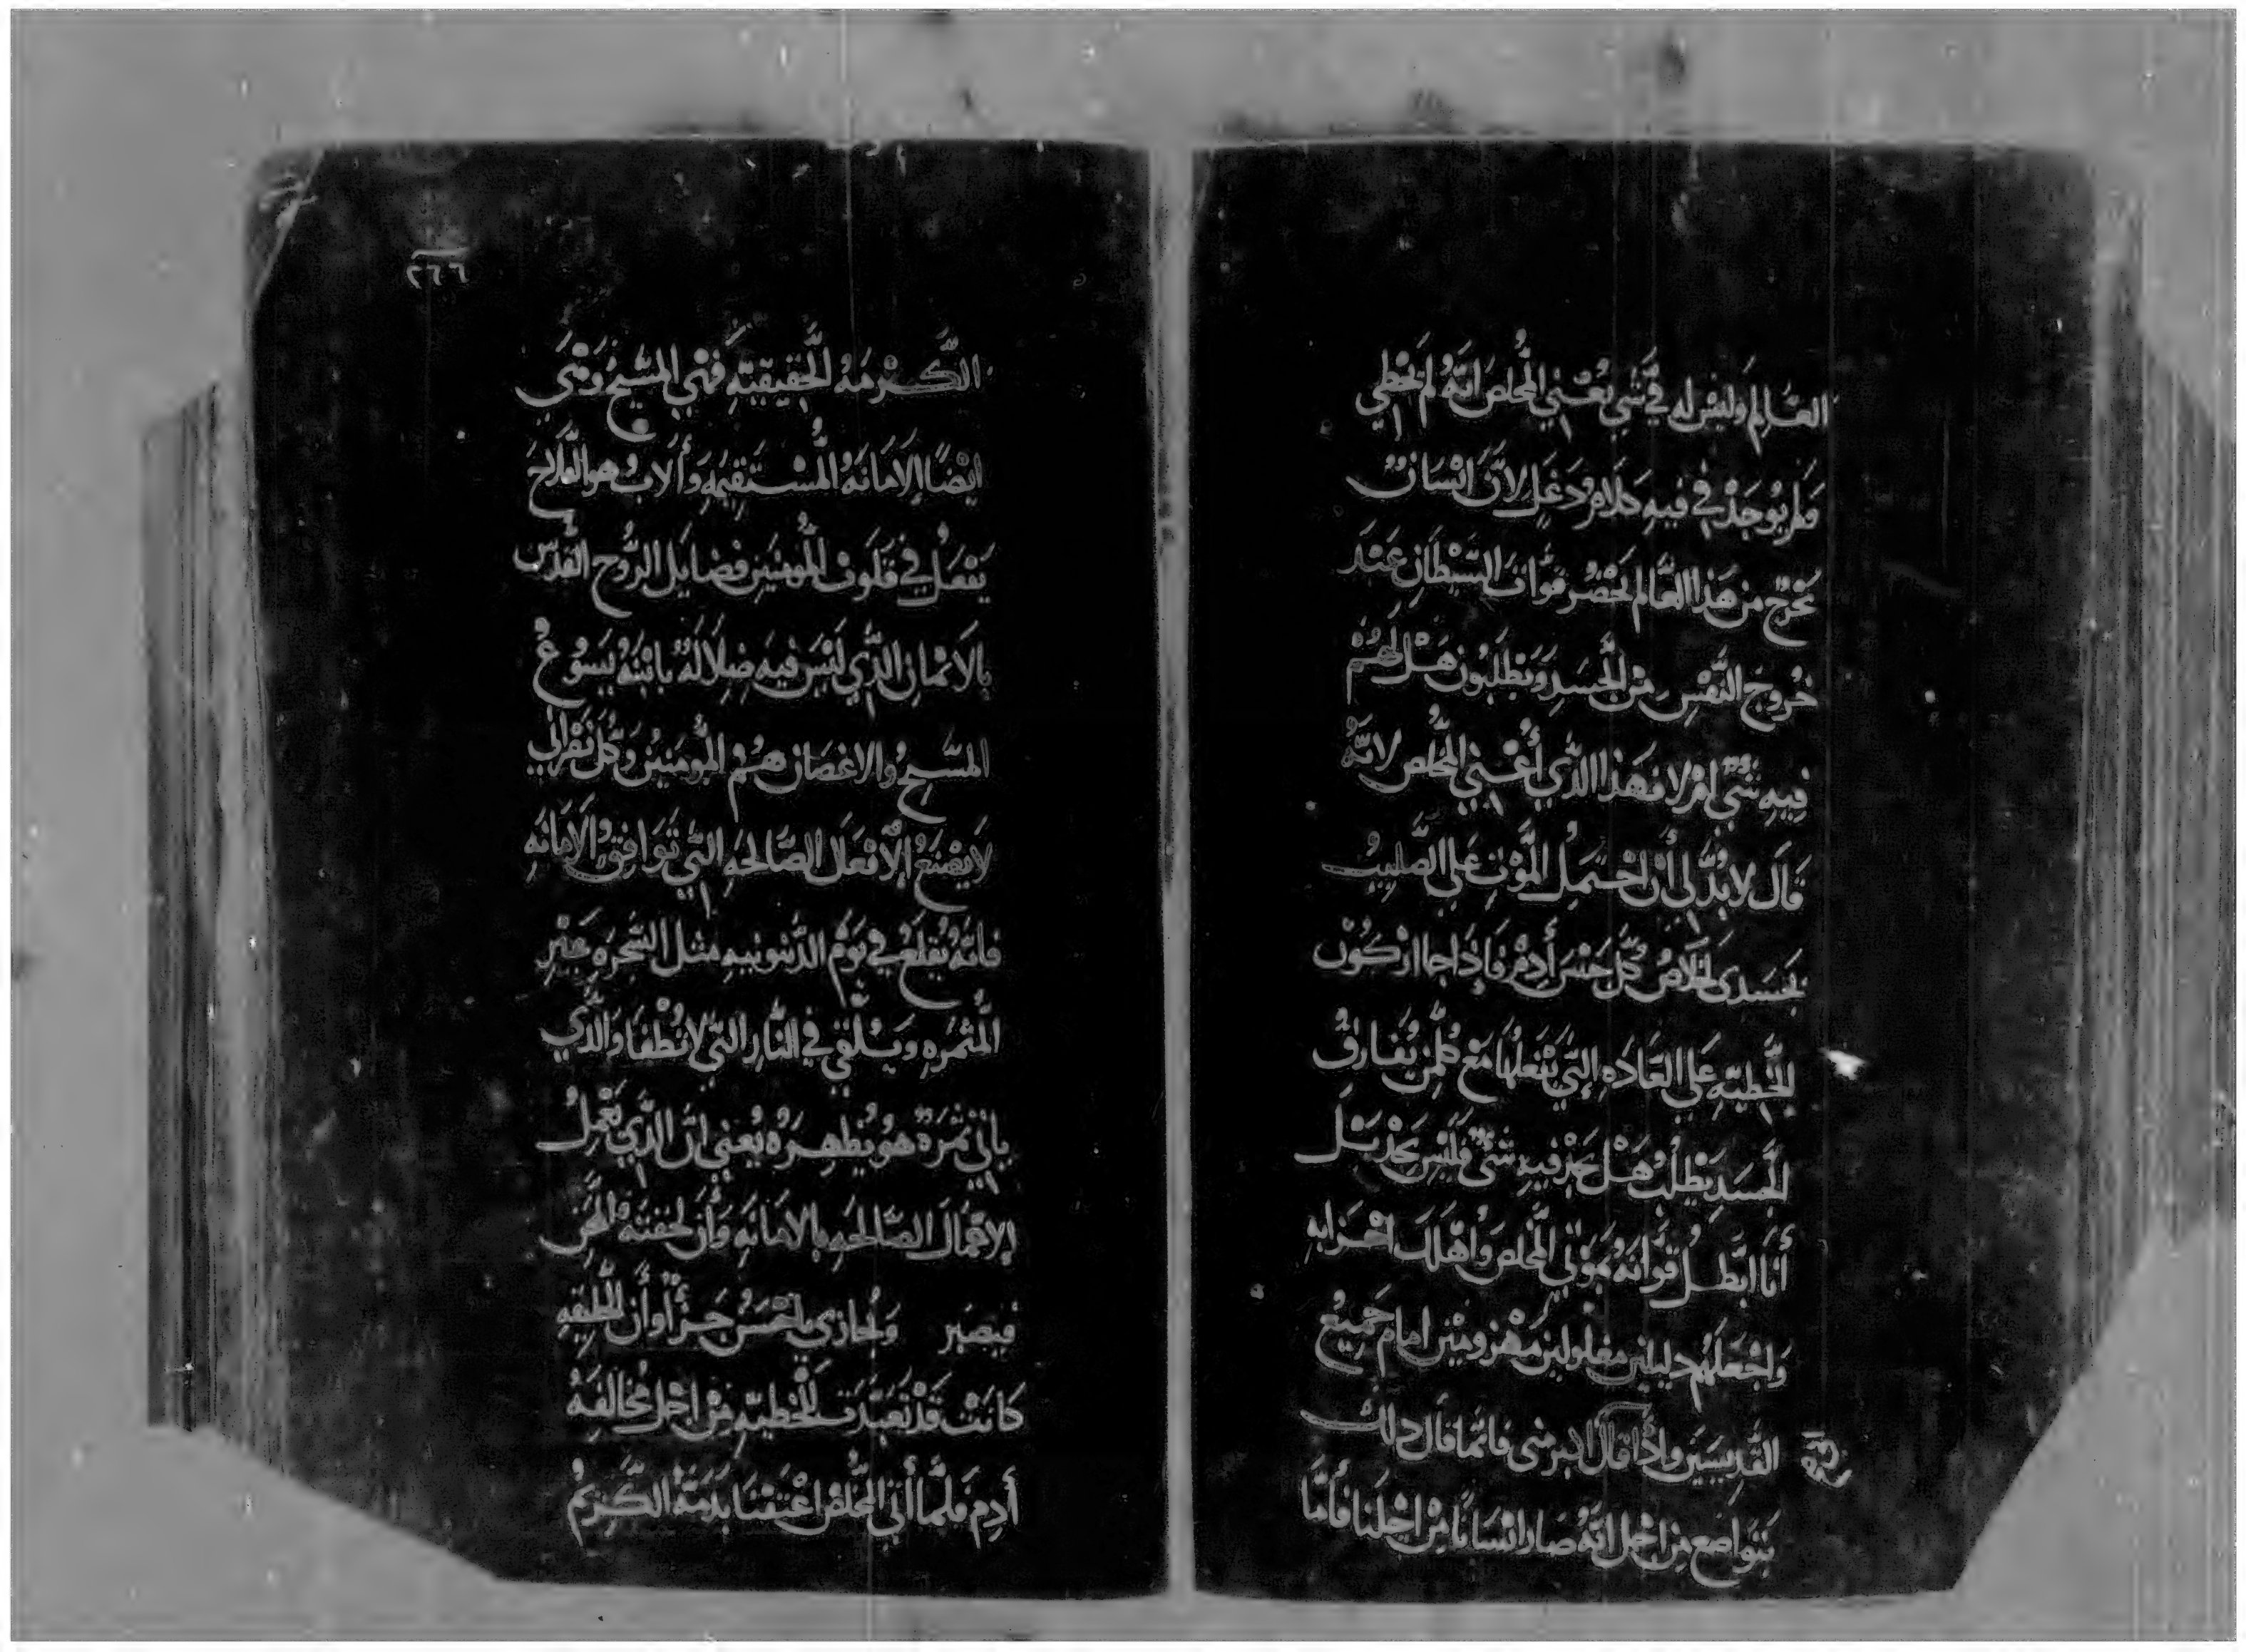 العَالِم وَليْس له فيَّ شي يُعْني المُخلص انّهُ لم يَخْطي
وَلم يُوجَدْ في فيهِ كلام دَغَل لانّ انْسَانٌ
يَخْرج من هَذا العَالم تحْضُر قوَّات الشيْطَانِ عنْدَ
خُروجَ النَفْسِ منْ الجَسَدِ وَيَطلُبُون هَلْ لهُمْ
فِيهِ شيٌ امْ لا فهَذا الذَّي أعْني المُخلص لانّهُ
قَال لا بُدّ لي أنْ احْتَمِلُ المَوْتِ عَلي الصَّلِيبْ
بجَسَدي لخلاصْ كلّ جنْسَ أدمْ فَاذا جا اركُوْن
الخَطيّهِ عَلي العَادَه التي يَفْعلهَا مَعْ كلّمنْ يُفارقُ
الجَسَدِ يَطْلُبْ هَلْ يَجدْ فيهِ شيٌ فَليْس يَجدْ بَلْ
أنَا ابَطّلُ قوَّاتهُ بموْتي المُخلص وَاهْلك احْزَابهِ
وَاجْعَلهُم دليلين مغلولين مَهْزومْين امام جَميْع
القدِيسَيَن واذا قال اكبر مني فانمّا قال دلك
بَتَواضع منْ اجْل انّهُ صَار انْسَانًا منْ اجْلنا فأمَّا
٢٦٦
الكَرْمَهُ الحَقيقيّهَ فَهي المسّيحُ وَهيَ
ايْضًا الامَانَهُ المُسْتَقيمَهِ وَألابُ هو الفَلاحَ
يَفْعَلُ في قَلوبْ المُومنيَن فضايَل الرُّوح القُدّس
بالايمَانِ الذَّي لَيْسَ فيهِ ضلالَهٌ بابْنهُ يَسوُعُ
المسّيحُ والاغصَان هُمْ المُومَنيْن وَكلّ نَصْراني
لا يَصْنَعُ الافعَال الصَّالحَهِ التّي توَافقُ الامَانَهِ
فانّهُ يُقلَعُ في يَوْم الدّينونيهِ مثل الشجَرَهِ غيْر
المُثمرَهِ وَيُلقيَ في النَّار التّي لا تُطفَا وَالذَّي
ياتي ثمَرَةٌ هوَ يُطهِرَهُ يُعني انّ الذَّي يَعْمِلُ
الاعْمَال الصَّالحَهِ بالامَانَهِ وَأن لحقتهُ المحَن
فيَصبر وَيُجازي باحْسَنْ جَزْأ وَأن الخَليقهِ
كَانتْ قدْ تعَبّدَت للخَطيّهِ منْ اجْل مُخالفَهُ
أدم فَلمَّا أتي المُخلصْ اعْتقنَا بدَمهُ الكَريمُ